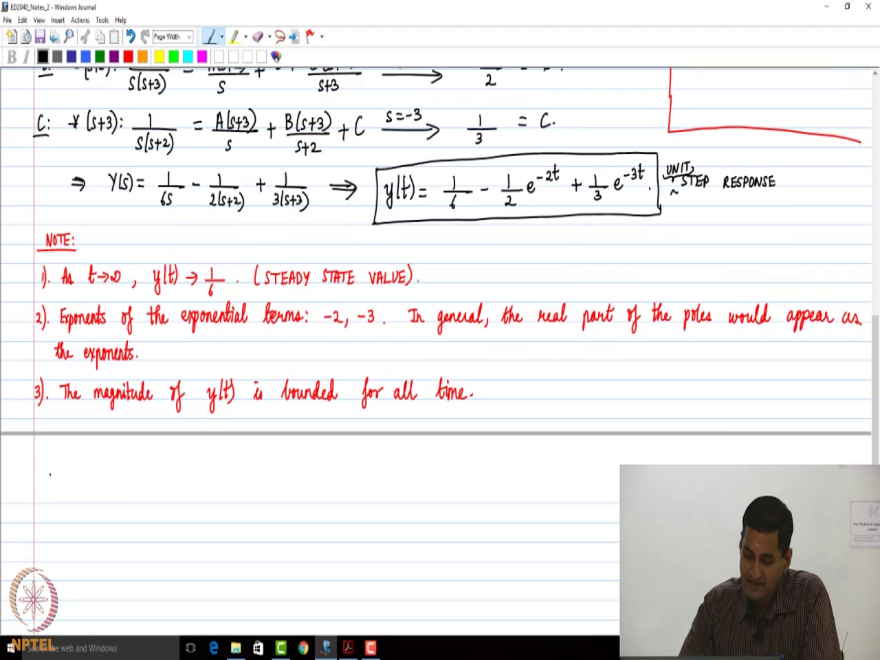 ED2040_Notes_2 - Windows Journal
File Edit View Insert Actions Tools Help
Page Width
B I
S(S+3) S S+3 2
C: * (S+3): 1/S(S+2) = A(S+3)/S + B(S+3)/S+2 + C S=-3 → 1/3 = C.
⇒ Y(S) = 1/6S - 1/2(S+2) + 1/3(S+3) ⇒ y(t) = 1/6 - 1/2 e^-2t + 1/3 e^-3t. UNIT STEP RESPONSE
NOTE:
1). As t→∞, y(t) → 1/6. (STEADY STATE VALUE).
2). Exponents of the exponential terms: -2, -3. In general, the real part of the poles would appear as
the exponents.
3). The magnitude of y(t) is bounded for all time.
NPTEL
the web and Windows